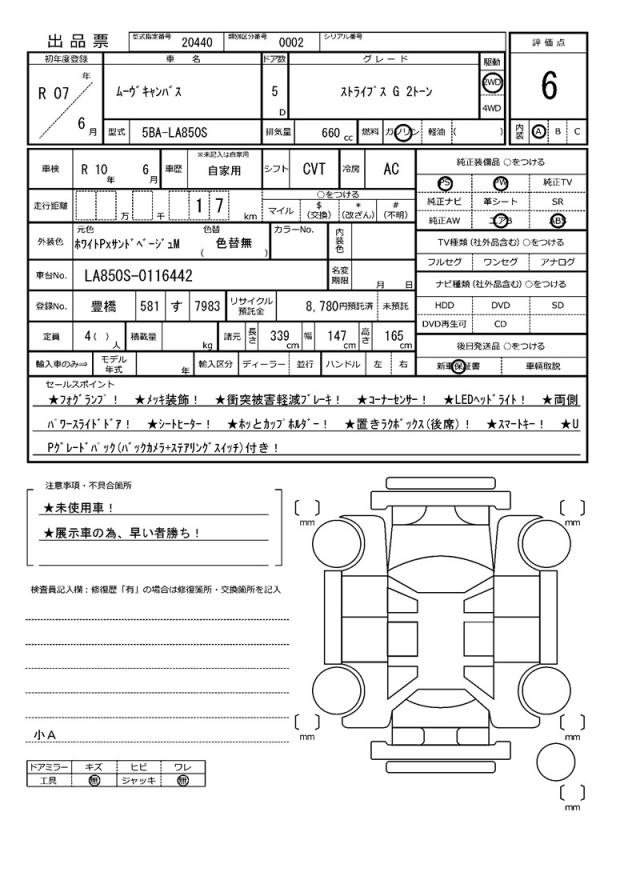 出品票 型式指定番号 20440 類別区分番号 0002 シリアル番号
評価点
6
内装 A B C
初年度登録 車名 ドア数 グレード 駆動
R 07 年 6 月 ムーヴキャンバス 5 D ストライプス G 2トーン 2WD 4WD
型式 5BA-LA850S 排気量 660 cc 燃料 ガソリン 軽油 ( )
車検 R 10 年 6 月 車歴 ※未記入は自家用 自家用 シフト CVT 冷房 AC
走行距離 万 千 1 7 km ○をつける マイル $ (交換) * (改ざん) # (不明)
外装色 元色 ホワイトPxサンドベージュM 色替 ( 色替無 ) カラーNo. 内装色
車台No. LA850S-0116442 名変期限 月 日
登録No. 豊橋 581 す 7983 リサイクル預託金 8,780円預託済 未預託
定員 4 ( ) 人 積載量 kg 諸元 長さ 339 cm 幅 147 cm 高さ 165 cm
輸入車のみ⇒ モデル年式 年 輸入区分 ディーラー 並行 ハンドル 左 右
純正装備品 ○をつける
PS PW 純正TV
純正ナビ 革シート SR
純正AW エアB ABS
TV種類 (社外品含む) ○をつける
フルセグ ワンセグ アナログ
ナビ種類 (社外品含む) ○をつける
HDD DVD SD
DVD再生可 CD
後日発送品 ○をつける
新車保証書 車輌取説
セールスポイント
★フォグランプ! ★メッキ装飾! ★衝突被害軽減ブレーキ! ★コーナーセンサー! ★LEDヘッドライト! ★両側
パワースライドドア! ★シートヒーター! ★ホッとカップホルダー! ★置きラクボックス(後席)! ★スマートキー! ★U
Pグレードパック(バックカメラ+ステアリングスイッチ)付き!
注意事項・不具合箇所
★未使用車!
★展示車の為、早い者勝ち!
検査員記入欄:修復歴「有」の場合は修復箇所・交換箇所を記入
小A
ドアミラー キズ ヒビ ワレ
工具 無 ジャッキ 無
[ ] mm
[ ] mm
[ ] mm
[ ] mm
[ ] mm